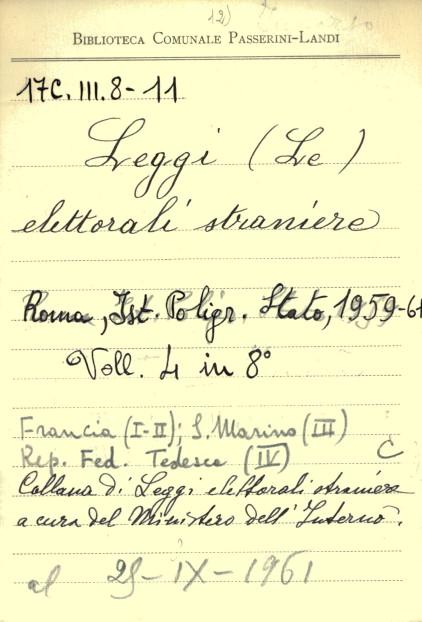 12)
BIBLIOTECA COMUNALE PASSERINI-LANDI
17C. III. 8-11
Leggi (Le)
elettorali straniere
Roma, Ist. Poligr. Stato, 1959-61
Voll. 4 in 8°
Francia (I-II); S. Marino (III)
Rep. Fed. Tedesca (IV) C
Collana di Leggi elettorali straniere
a cura del Ministero dell'Interno.
al 25-IX-1961